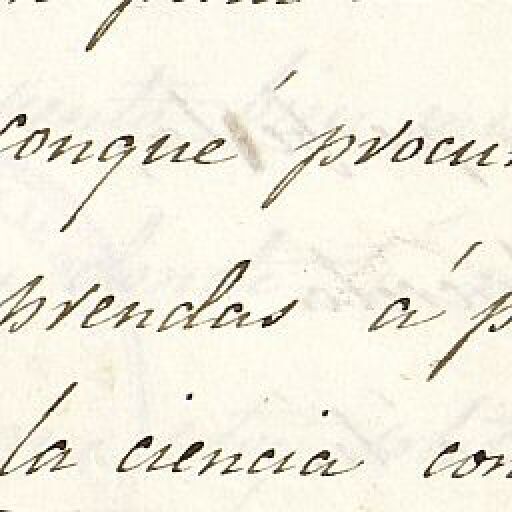 conque procu
prendas á p
la ciencia con